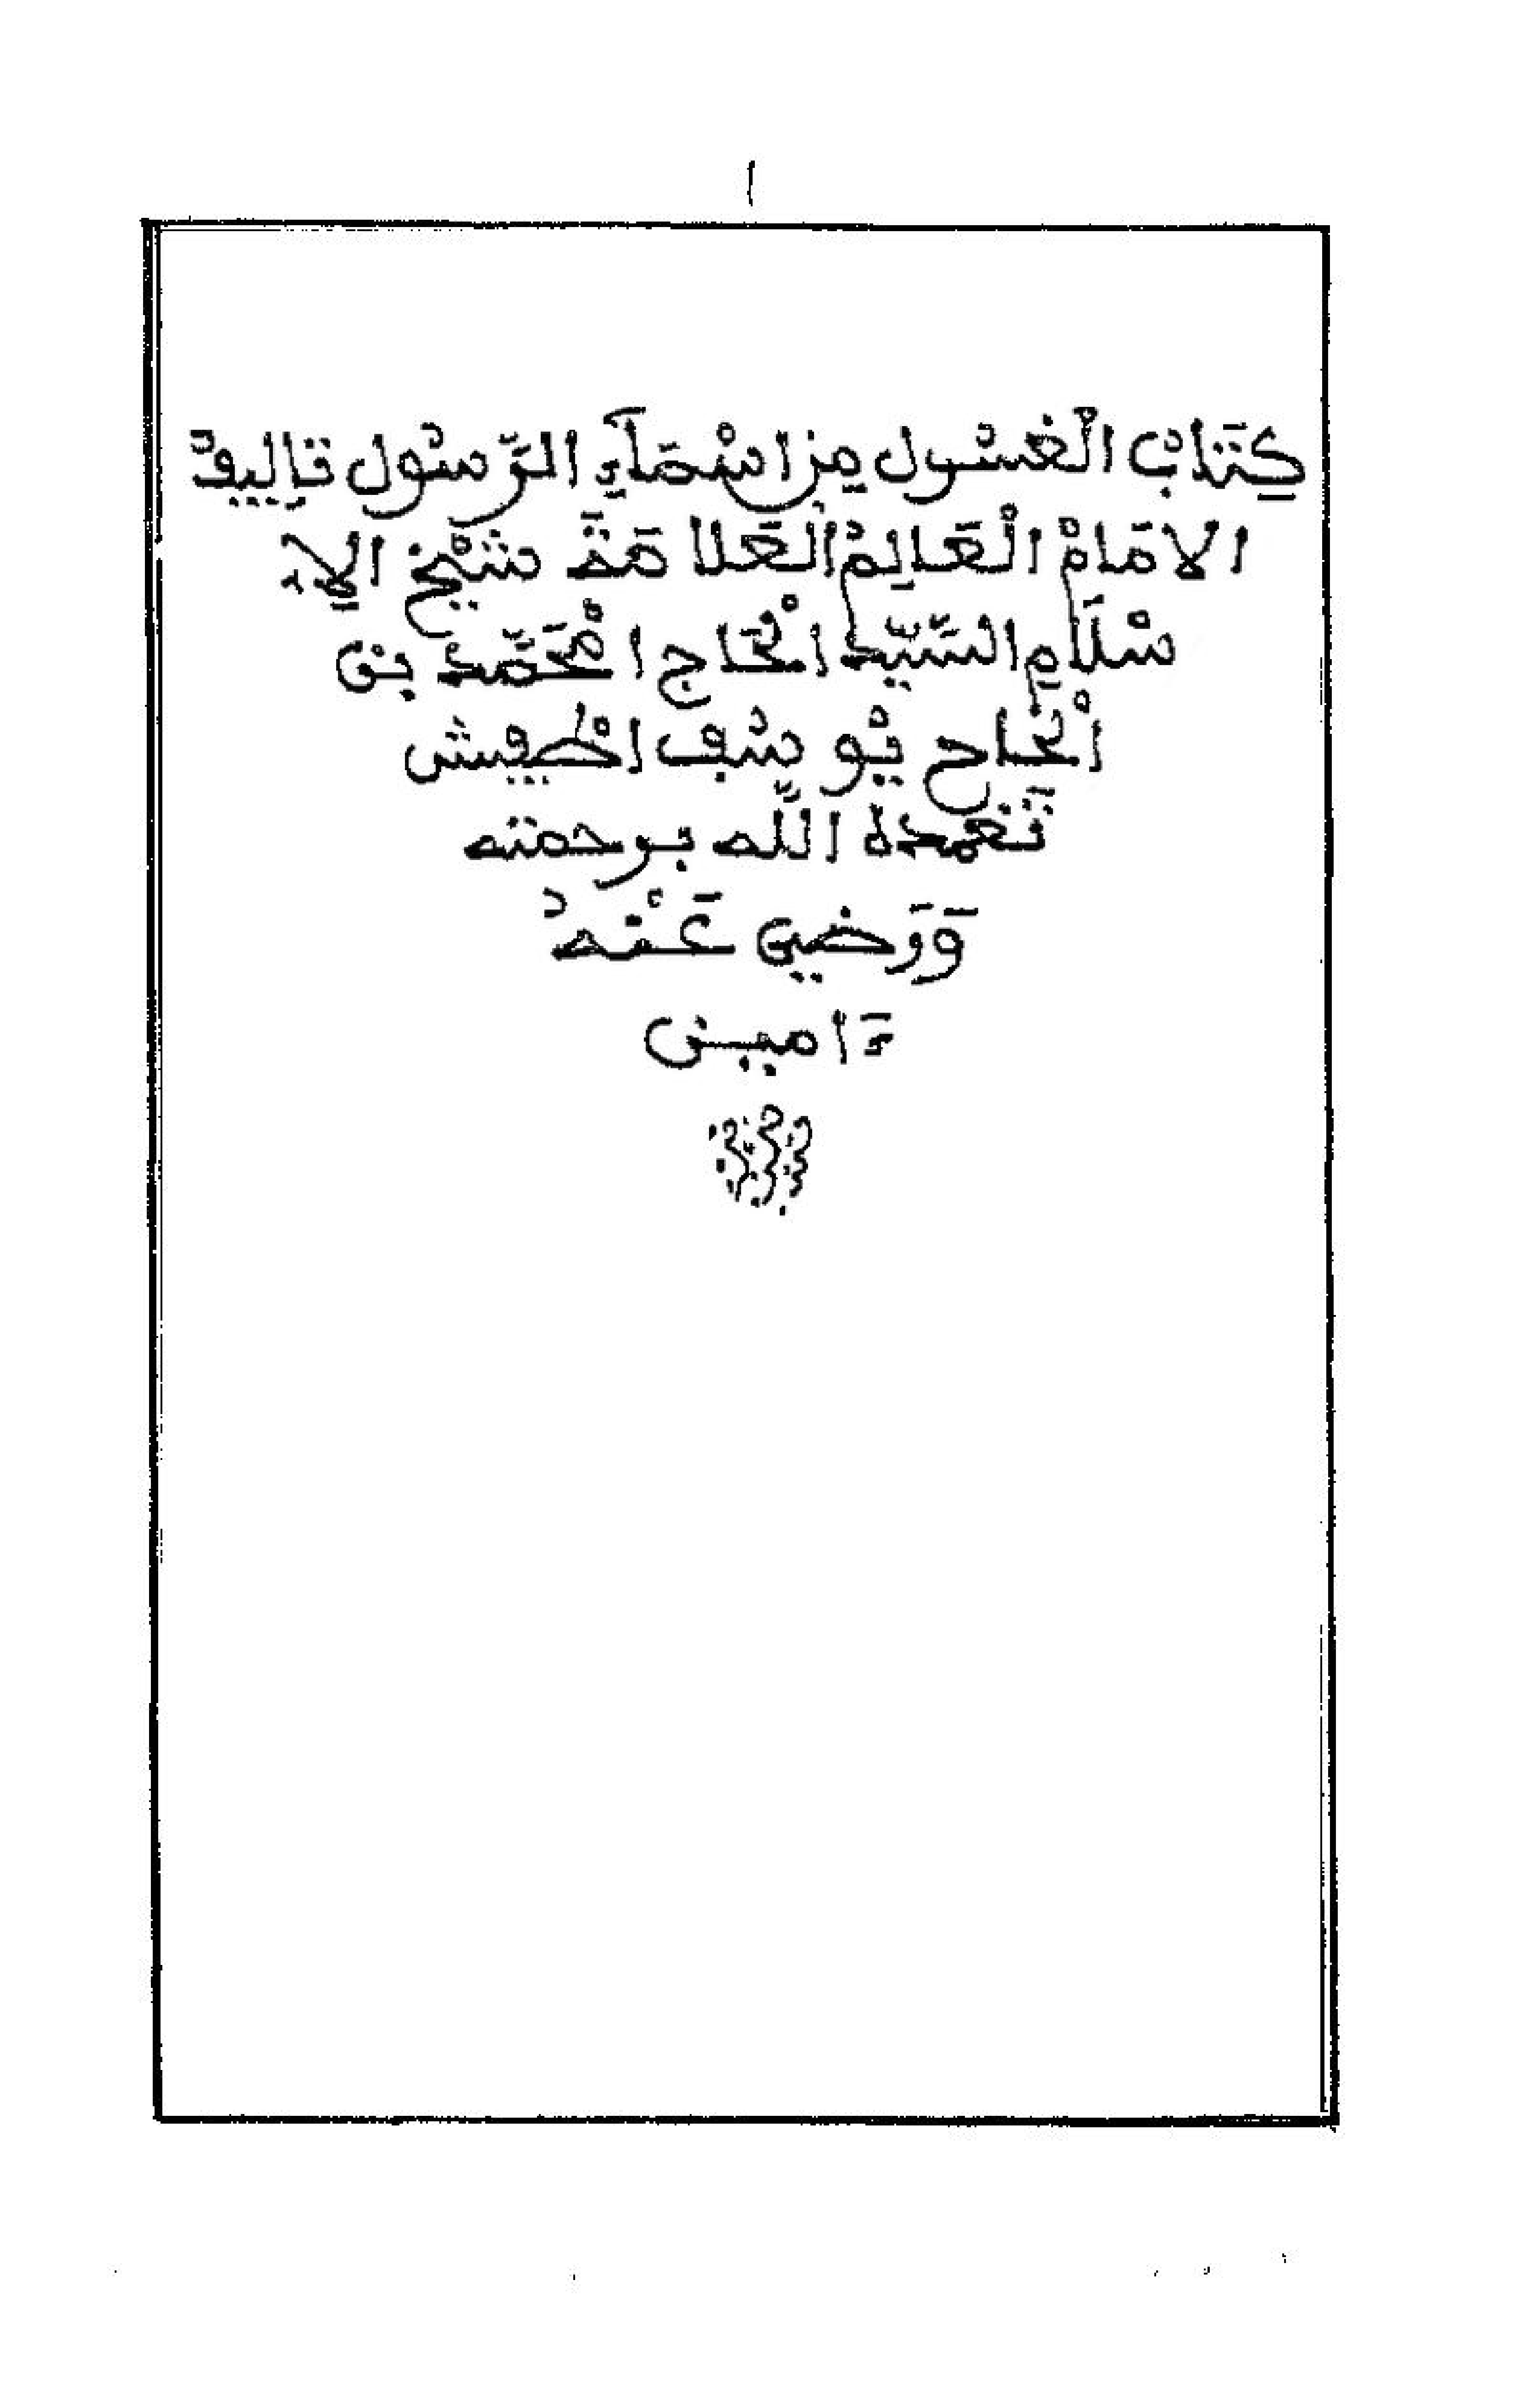 ١
كِتَابُ الْغُسُولِ مِنَ اسْمَآءِ الرَّسُولِ تَالِيفُ
الامَامُ الْعَالِمُ الْعَلَّامَةُ شَيْخِ الِا
سْلَامِ السَّيِّدُ الْحَاج امْحَمَّد بن
الْحَاج يُوسُف اطْفِيش
تَغَمده اللَّه برحمته
وَرَضِيَ عَنْهُ
ءَامين